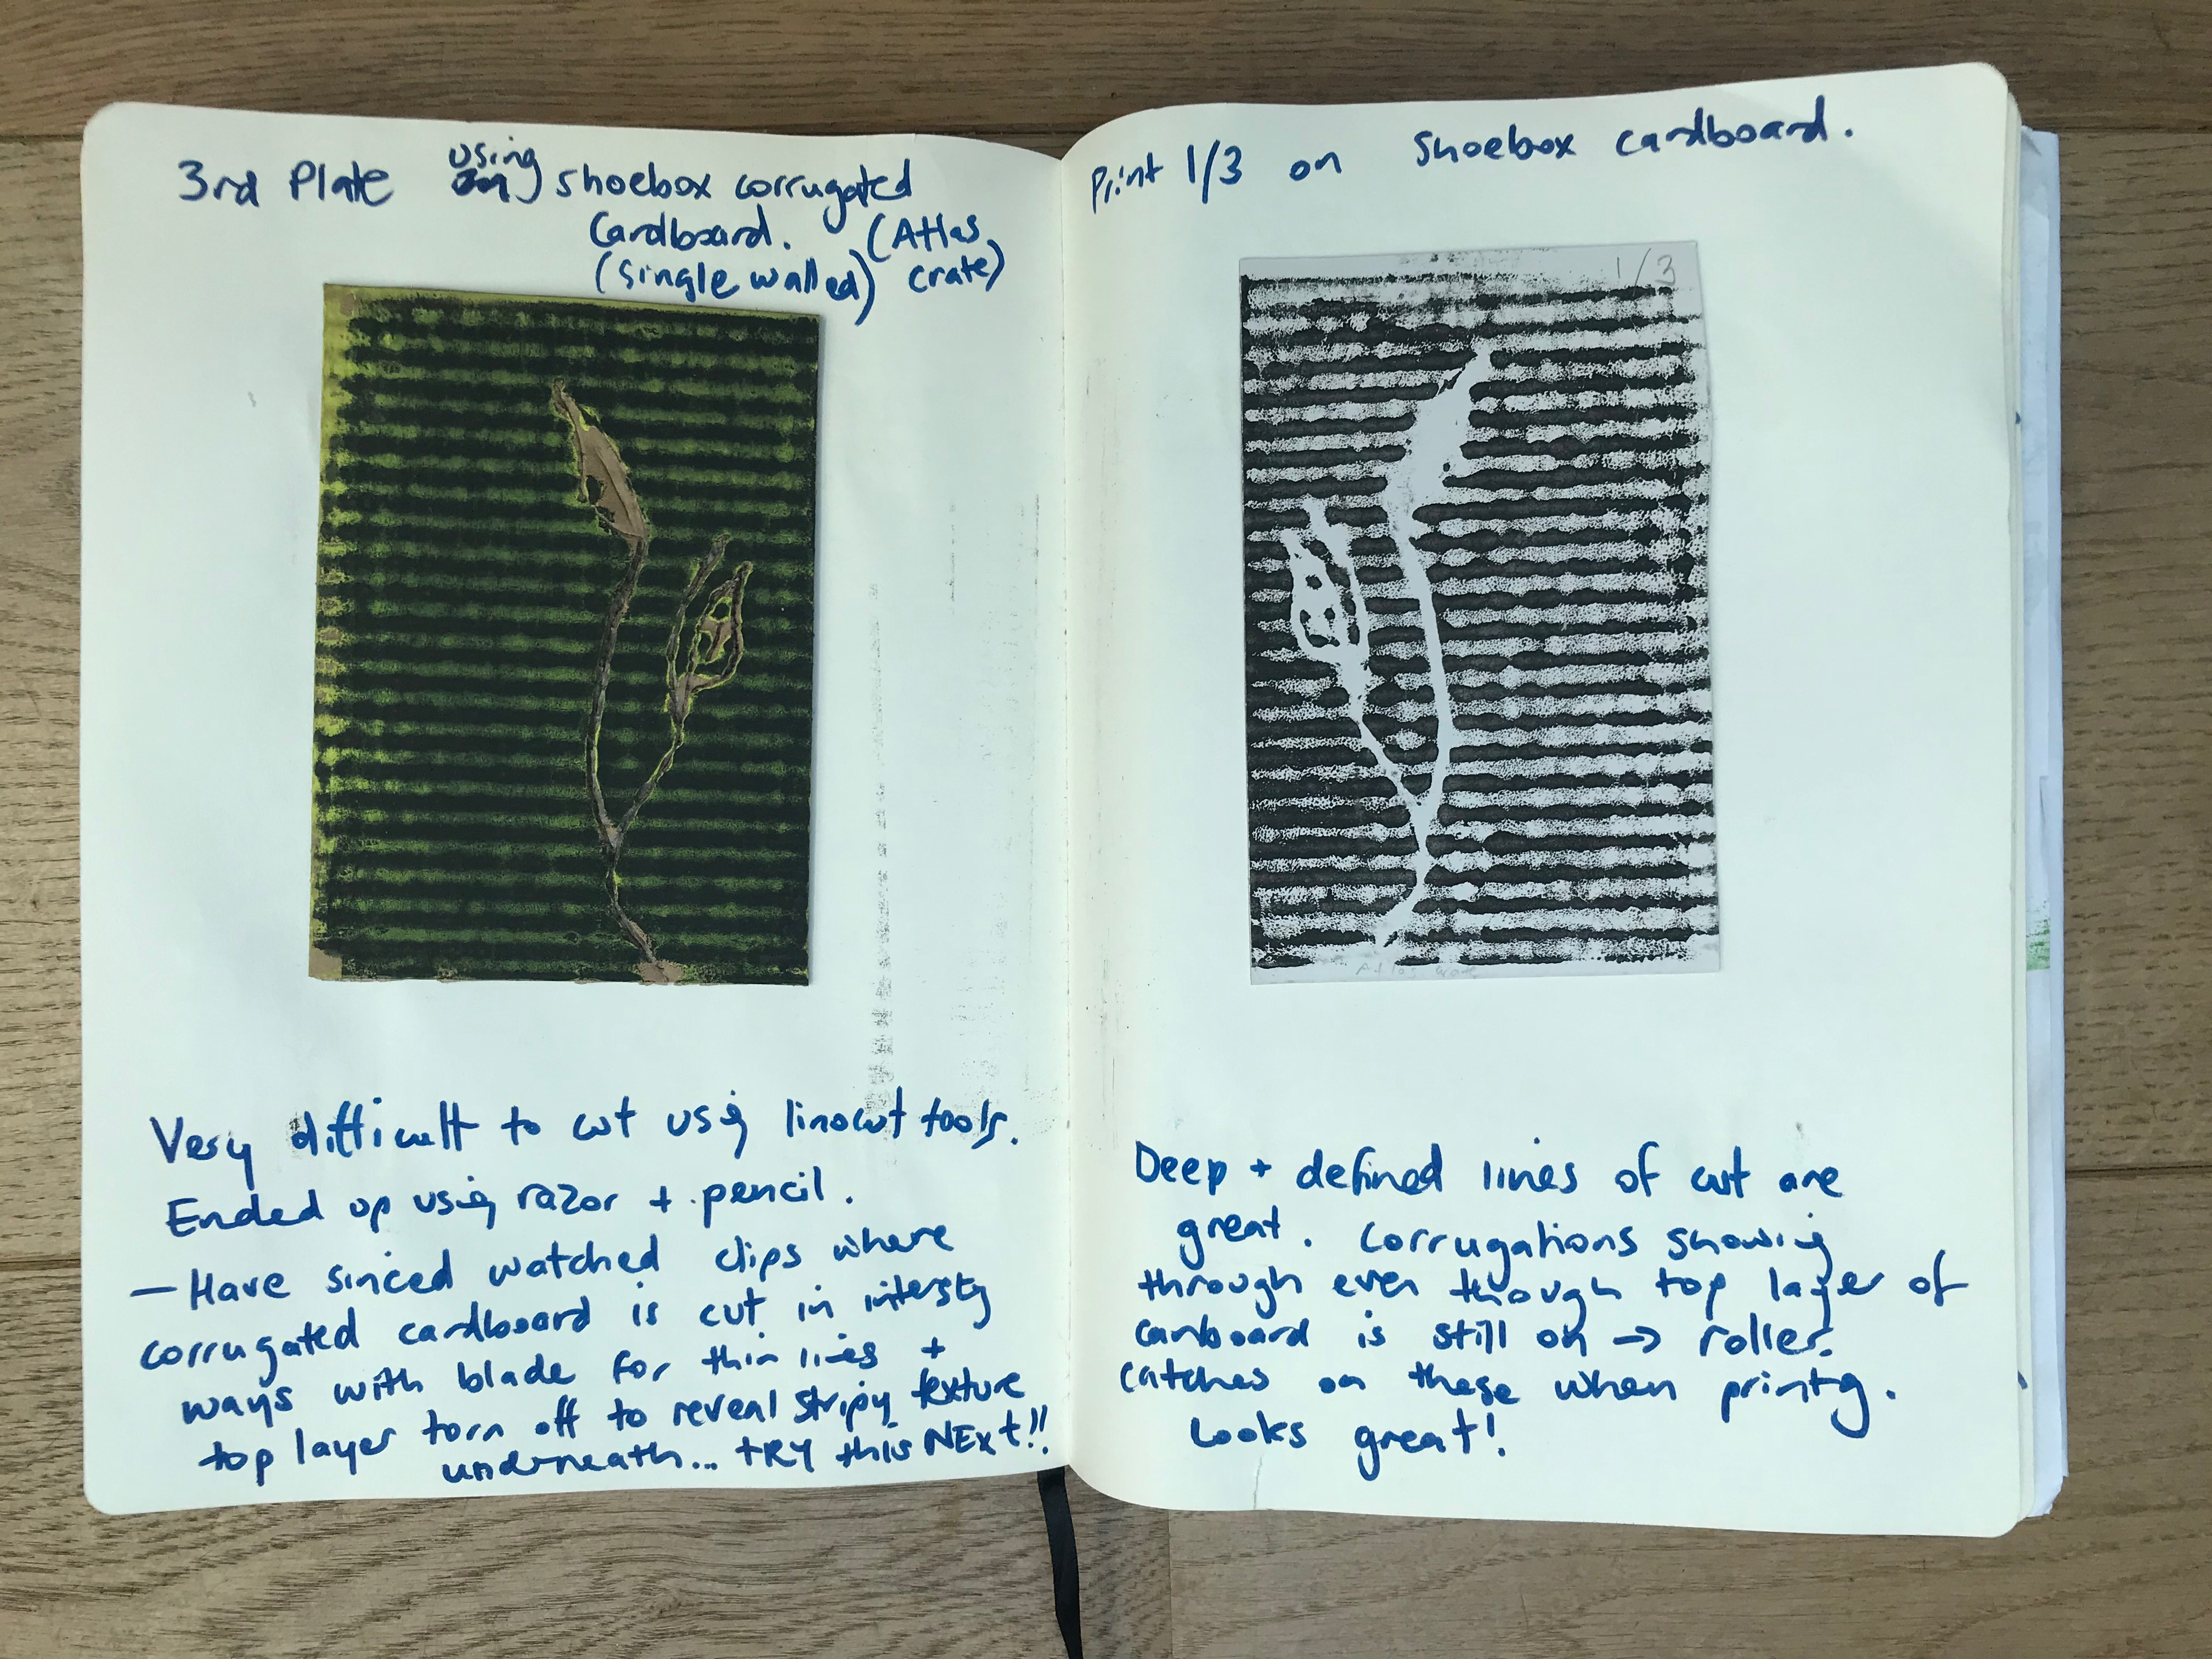 3rd Plate using shoebox corrugated
Cardboard. (Atlas
(single walled) crate)
Very difficult to cut using linocut tools.
Ended up using razor + pencil.
— Have sinced watched clips where
corrugated cardboard is cut in intersty
ways with blade for thin lines +
top layer torn off to reveal stripy texture
underneath... tRY this NExt!!
Print 1/3 on Shoebox cardboard.
1/3
Atlas crate
Deep + defined lines of cut are
great. Corrugations showing
through even though top layer of
carboard is still on → roller
catches on these when printg.
Looks great!